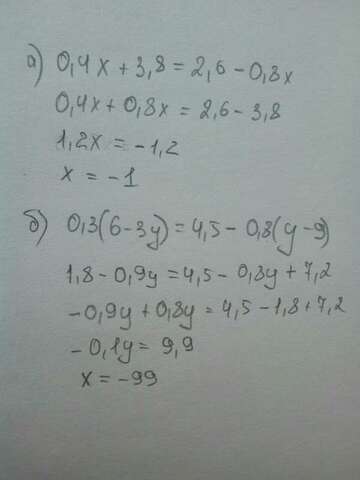 а) 0,4x + 3,8 = 2,6 - 0,8x
0,4x + 0,8x = 2,6 - 3,8
1,2x = -1,2
x = -1
б) 0,3(6-3y) = 4,5 - 0,8(y-9)
1,8 - 0,9y = 4,5 - 0,8y + 7,2
-0,9y + 0,8y = 4,5 - 1,8 + 7,2
-0,1y = 9,9
x = -99